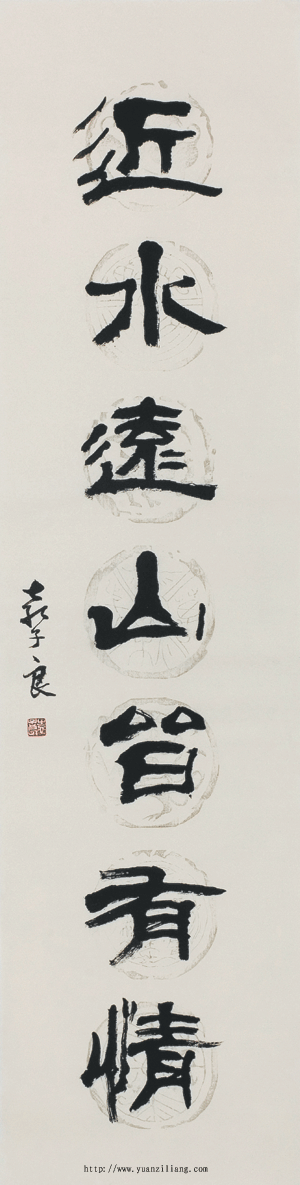 近水遠山皆有情
袁子良
http://www.yuanziliang.com